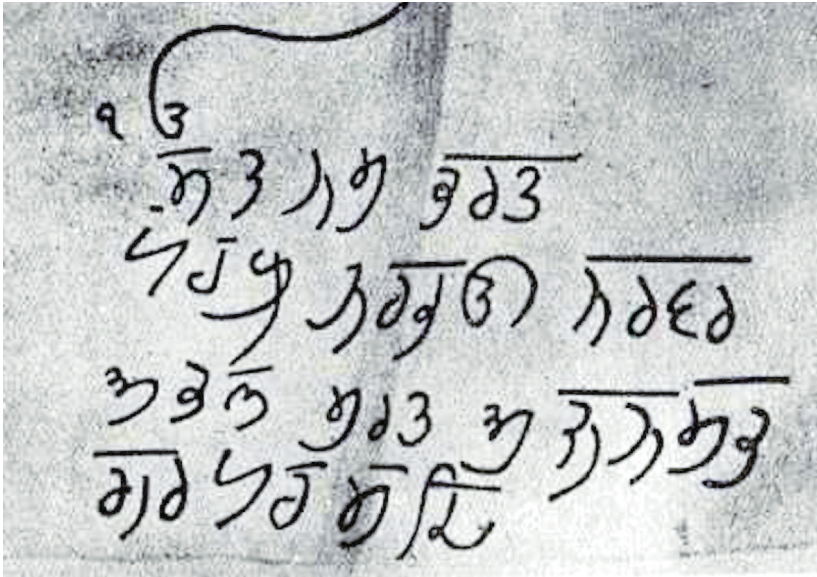 ੧ਓ
ਸਤ ਨਮ ਕਰਤ
ਪਰਖ ਨਰਭਉ ਨਰਵਰ
ਅਕਲ ਮਰਤ ਅਜਨ ਸਭ
ਗਰ ਪਰਸਦ